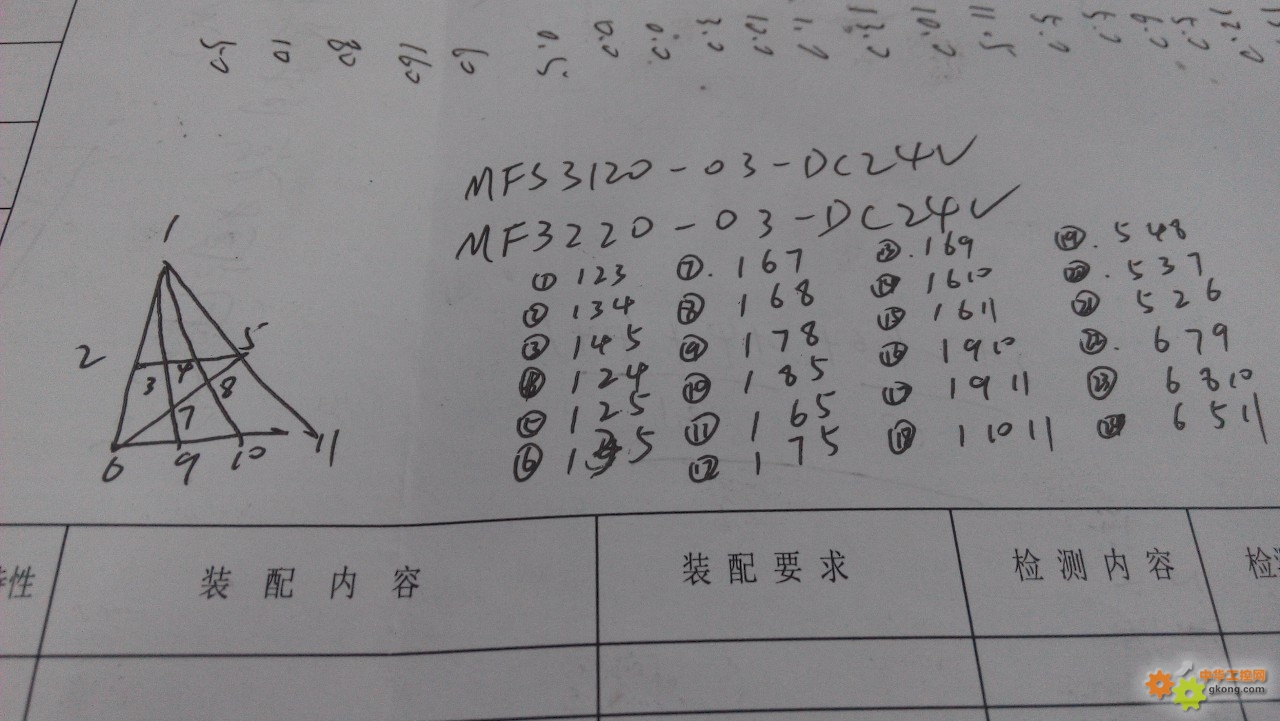 50 10 80 160 60 5.0
MFS3120-03-DC24V
MF3220-03-DC24V
① 123 ⑦. 167 ⑬. 169 ⑲. 548
② 134 ⑧ 168 ⑭ 1610 ⑳. 537
③ 145 ⑨ 178 ⑮ 1611 ㉑ 526
④ 124 ⑩ 185 ⑯ 1910 ㉒. 679
⑤ 125 ⑪ 165 ⑰ 1911 ㉓ 6810
⑥ 135 ⑫ 175 ⑱ 11011 ㉔ 6511
1
2 5
3 4 8
7
6 9 10 11
性 装配内容 装配要求 检测内容 检
中华工控网
gkong.com